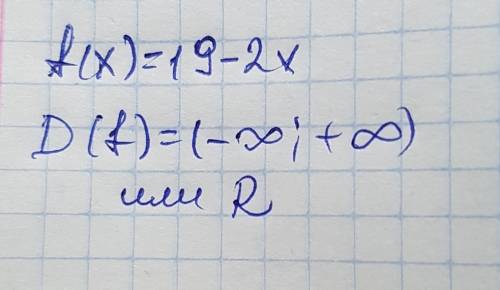 f(x)=19-2x
D(f)=(-∞;+∞)
или R